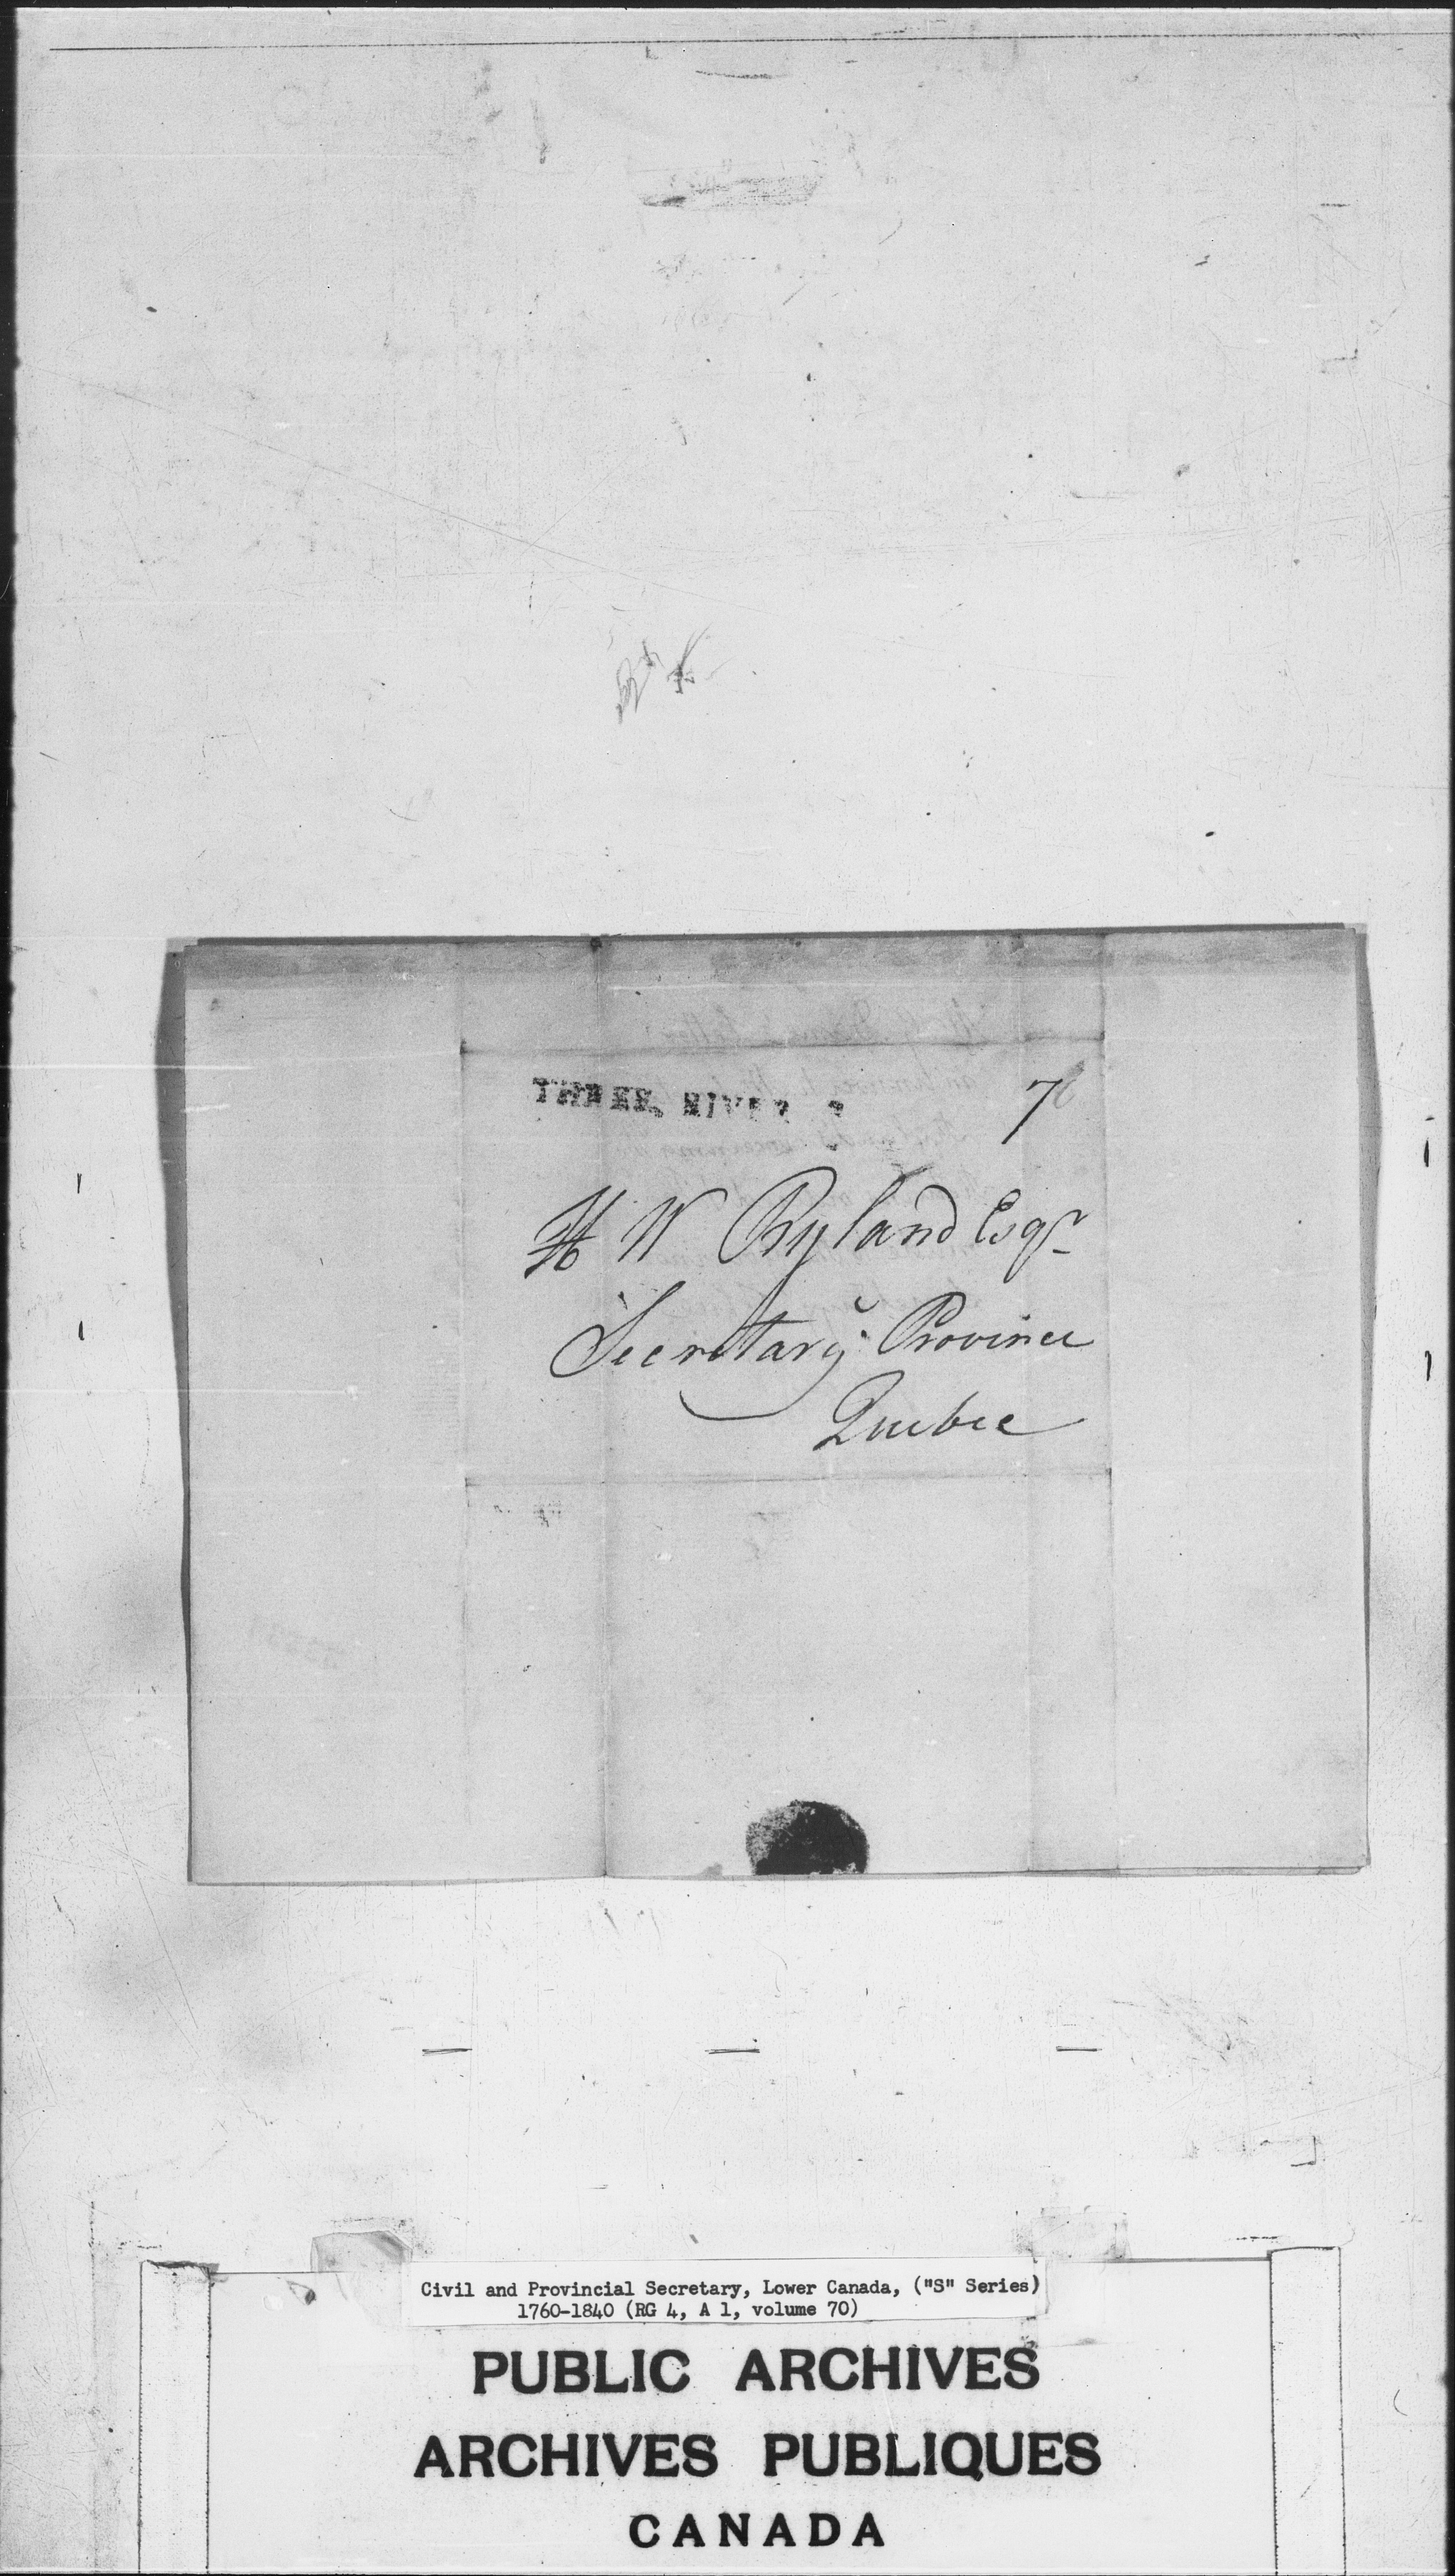 THREE RIVERS
7
H W Ryland Esqr
Secretary Province
Quebec
Civil and Provincial Secretary, Lower Canada, ("S" Series)
1760-1840 (RG 4, A 1, volume 70)
PUBLIC ARCHIVES
ARCHIVES PUBLIQUES
CANADA